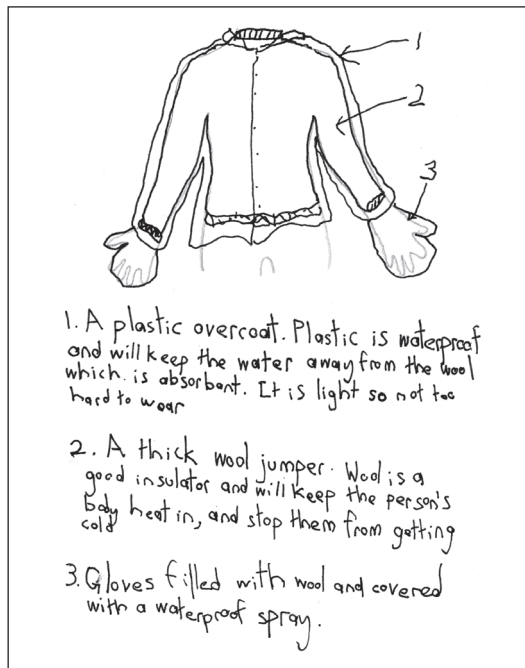 1
2
3
1. A plastic overcoat. Plastic is waterproof
and will keep the water away from the wool
which is absorbent. It is light so not too
hard to wear
2. A thick wool jumper. Wool is a
good insulator and will keep the person's
body heat in, and stop them from getting
cold
3. Gloves filled with wool and covered
with a waterproof spray.